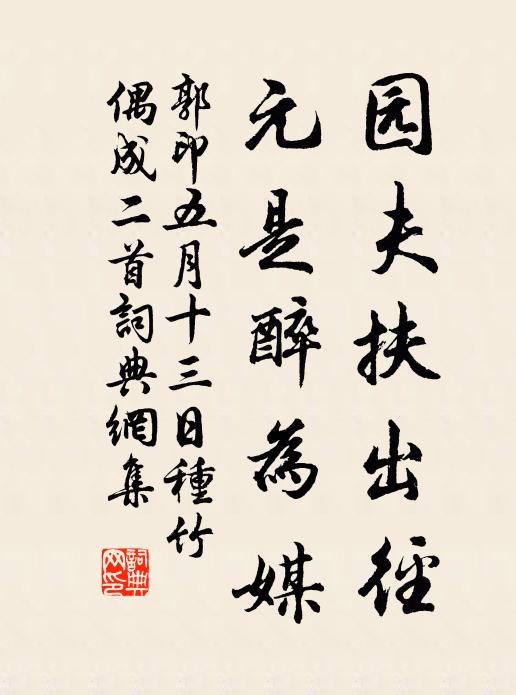 园夫扶出径
元是醉為媒
郭印五月十三日種竹
偶成二首詞典網集
詞典网印